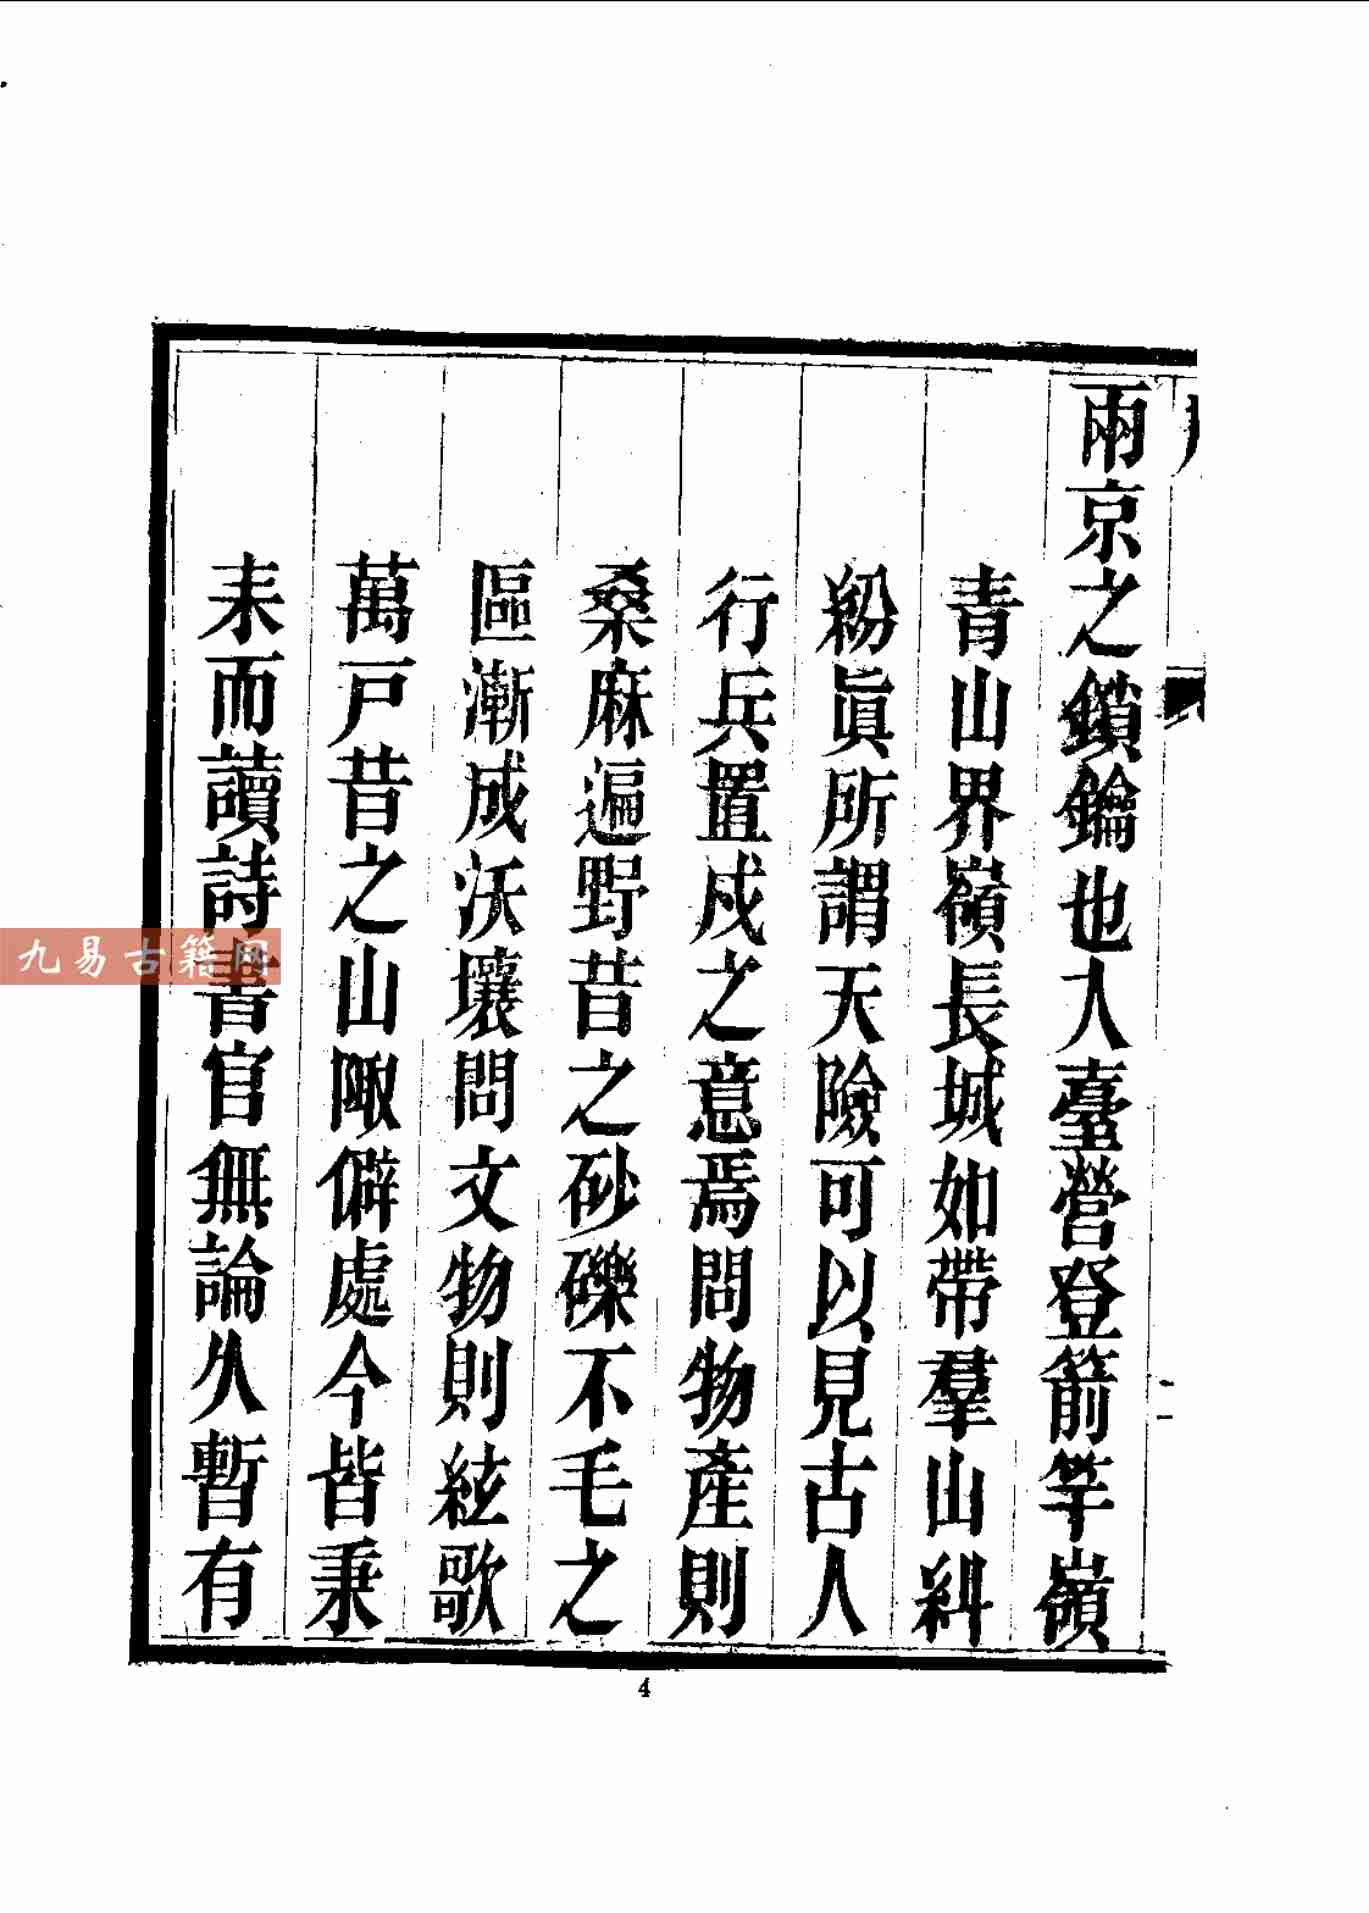 兩京之鎖鑰也入臺營登箭竿嶺
青山界嶺長城如帶羣山糾
紛眞所謂天險可以見古人
行兵置戍之意焉問物產則
桑麻遍野昔之砂礫不毛之
區漸成沃壤問文物則絃歌
萬戸昔之山陬僻處今皆秉
耒而讀詩書官無論久暫有
4
九易古籍网